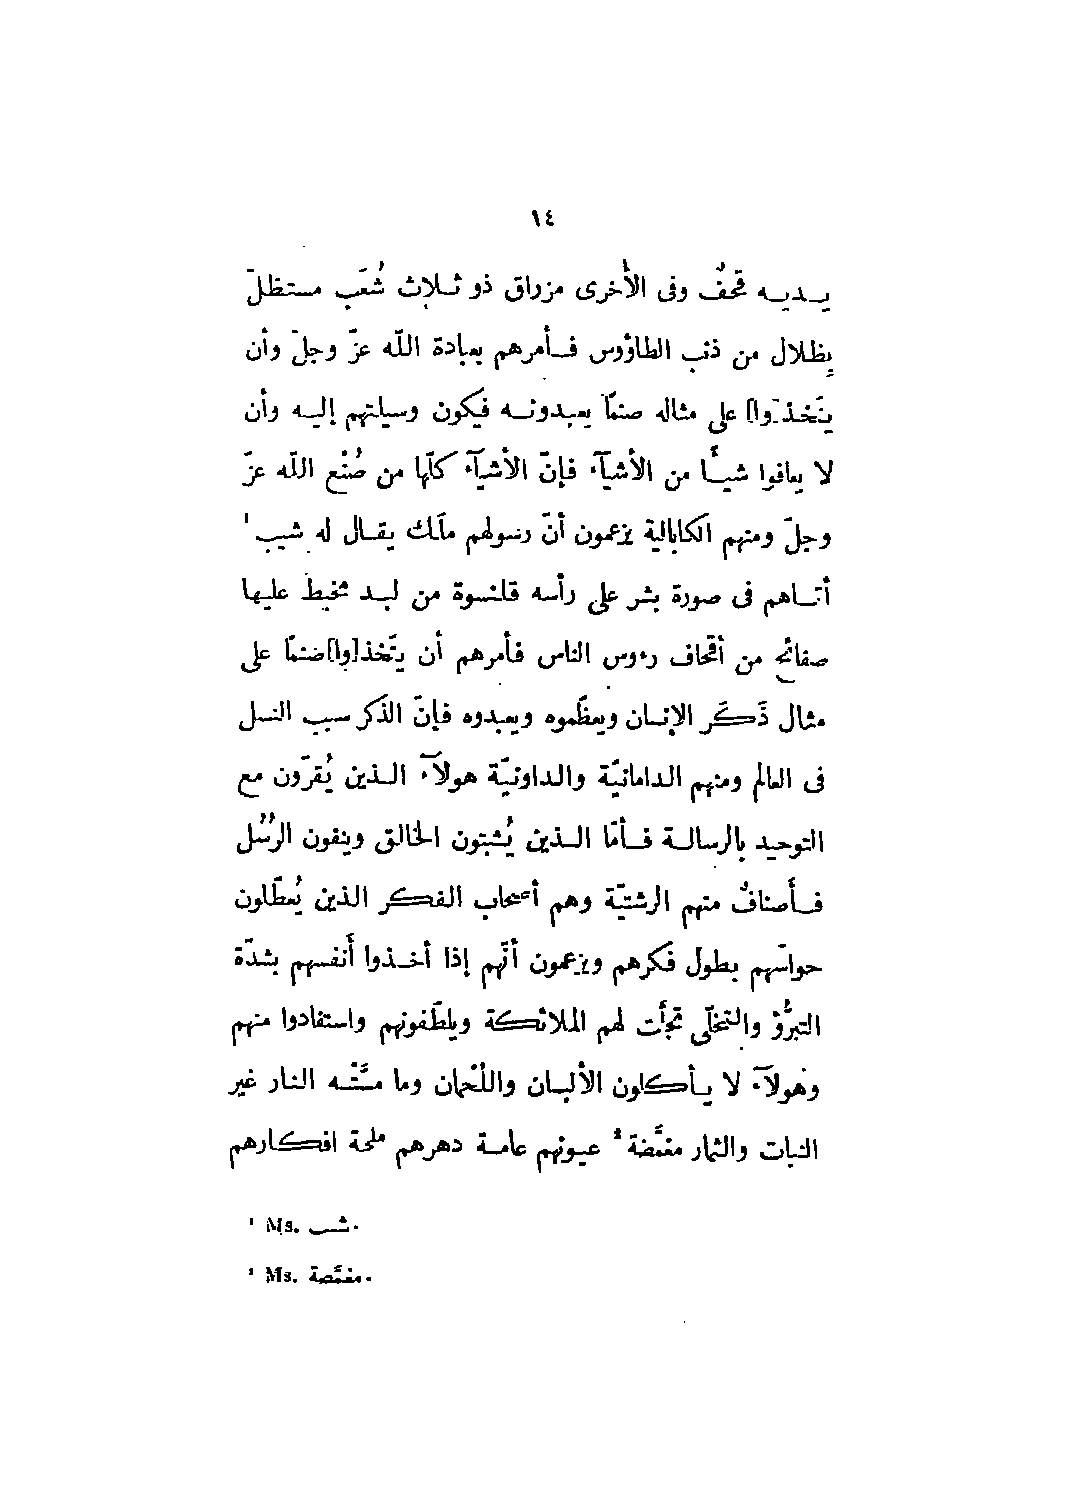 ١٤
يـديـه قحفٌ وفى الأُخرى مزراق ذو ثـلاث شُعَب مستظلّ
بِظلال من ذنب الطاؤوس فـأمرهم بعبادة اللّه عزّ وجلّ وأن
يتّخذ[وا] على مثاله صنمًا يعبدونـه فيكون وسيلتهم إليـه وأن
لا يعافوا شيـأً من الأشيآء فإنّ الأشيآء كلّها من صُنْع اللّه عزّ
وجلّ ومنهم الكابالية يزعمون أنّ رسولهم ملَك يقـال له شيب ¹
أتـاهم فى صورة بشر على رأسه قلنسوة من لبـد مخيط عليها
صفائح من أقحاف رءوس الناس فأمرهم أن يتّخذ[وا] صنمًا على
مثال ذَكَر الإنسان ويعظّموه ويعبدوه فإنّ الذكر سبب النسل
فى العالم ومنهم الدامانيّة والداونيّة هولآء الـذين يُقرّون مع
التوحيد بالرسالـة فـأمّا الـذين يُثبتون الخالق وينفون الرُسُل
فـأصنافٌ منهم الرشتيّة وهم أصحاب الفكر الذين يُعطّلون
حواسّهم بطول فكرهم ويزعمون أنّهم إذا أخـذوا أَنفسهم بشدّة
التبرُّؤ والتخلّى تجأّت لهم الملائكة ويلطّفونهم واستفادوا منهم
وهولآء لا يـأكلون الألبـان واللُحْمان وما مسَّتْـه النـار غير
النبات والثمار مغمَّضة ² عيونهم عامـة دهرهم ملحة افكارهم
¹ Ms. شـب.
² Ms. مغمَّصة.